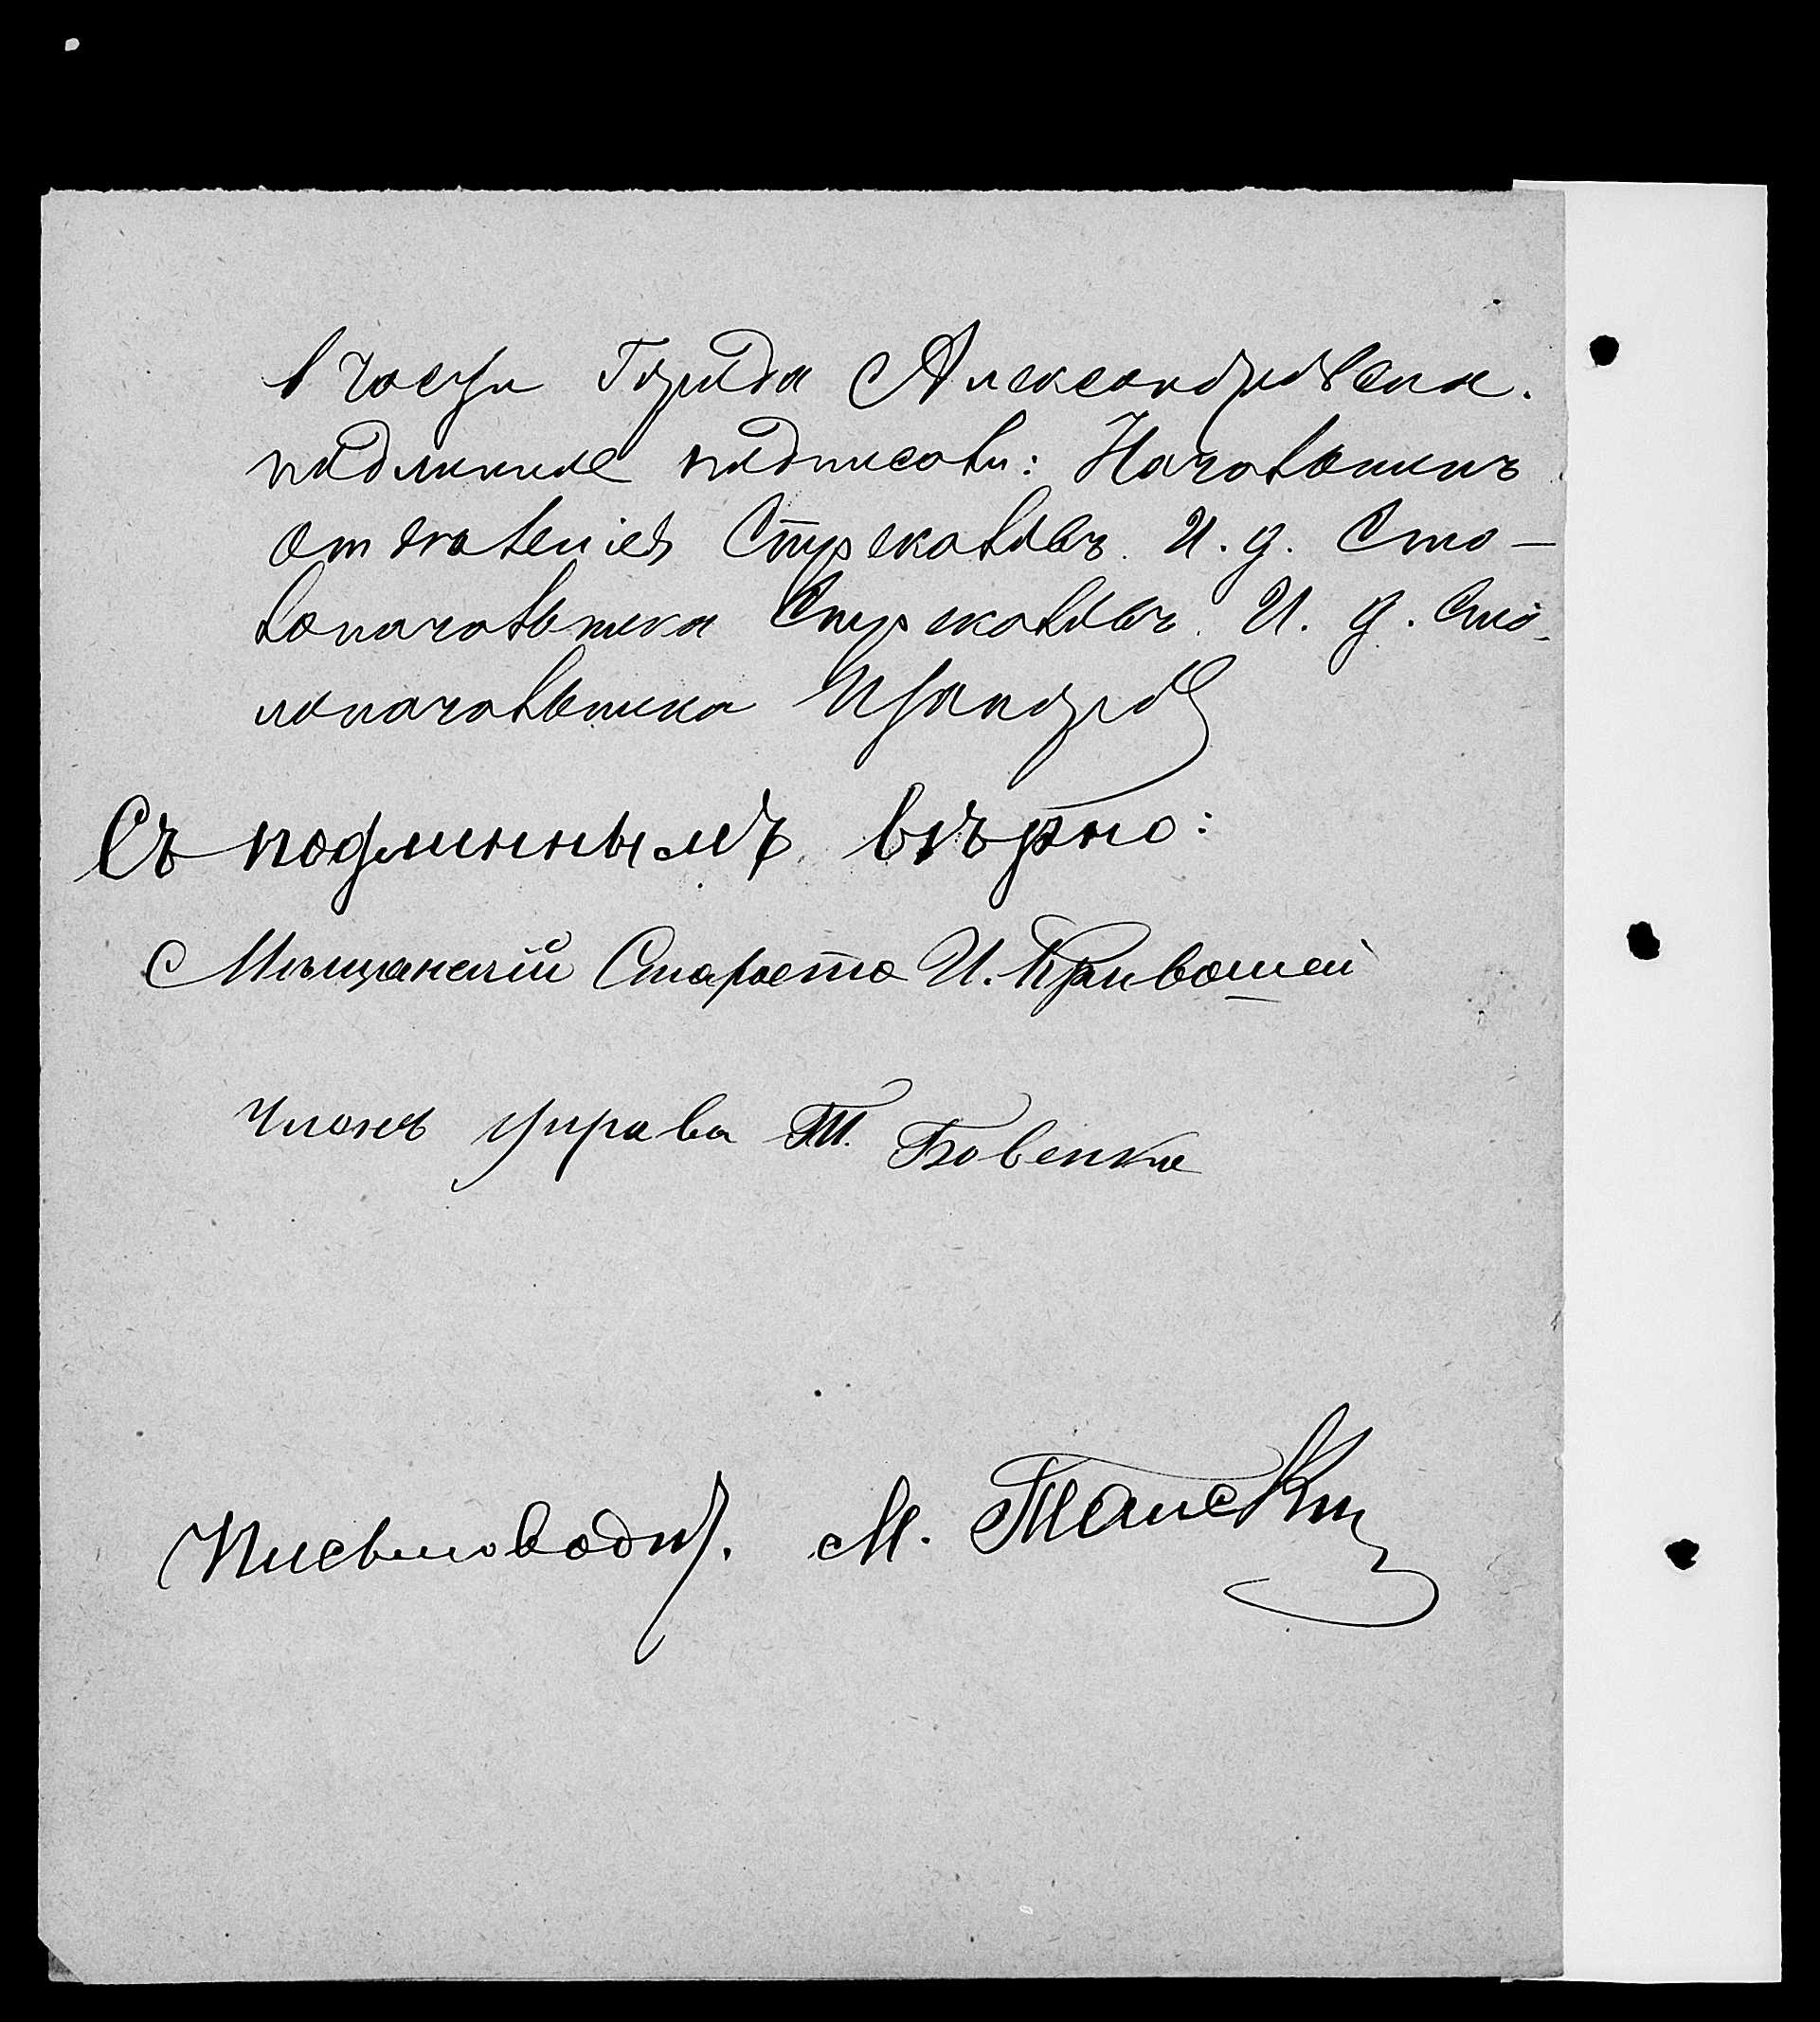 1 части Города Александровска.
подлинное подписали: Начальникъ
отделенія Стрекаловъ. И. д. Сто-
лоначальника Стрекаловъ. И. д. Сто-
лоначальника
Съ подлиннымъ вѣрно:
Мѣщанскій Староста И. Кривошей
Членъ управы Т. Бовенко
Письмовод. М. Танский